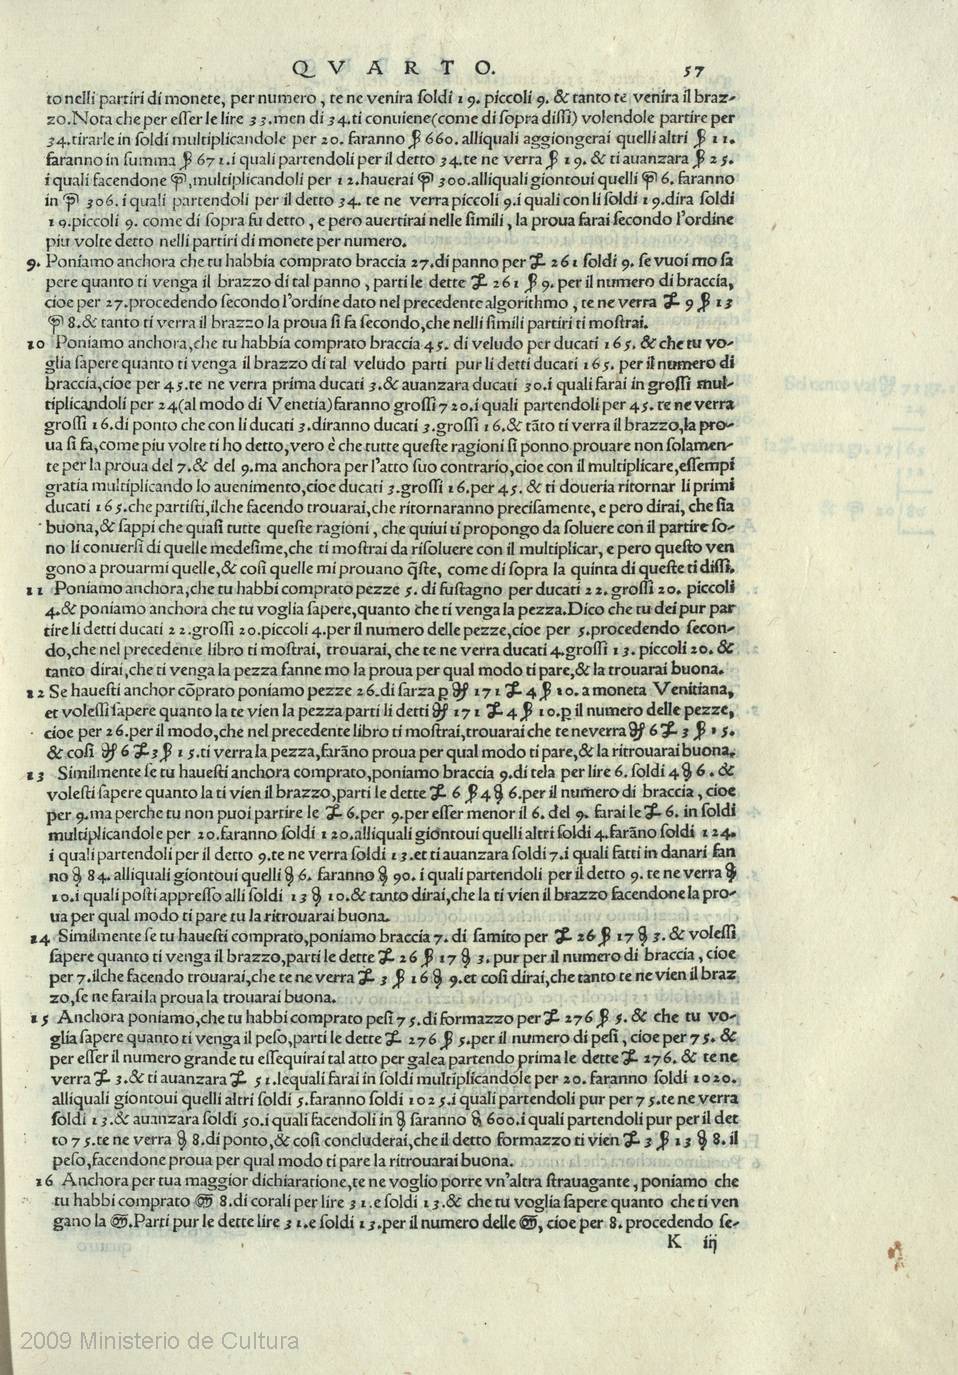 QVARTO. 57
to nelli partiri di monete, per numero, te ne venira ſoldi 19. piccoli 9. & tanto te venira il braz-
zo. Nota che per eſſer le lire 33. men di 34. ti conuiene (come di ſopra diſſi) volendole partire per
34. tirarle in ſoldi multiplicandole per 20. faranno ꝭ 660. alliquali aggiongerai quelli altri ꝭ 11.
faranno in ſumma ꝭ 671. i quali partendoli per il detto 34. te ne verra ꝭ 19. & ti auanzara ꝭ 25.
i quali facendone ꝓ, multiplicandoli per 12. hauerai ꝓ 300. alliquali giontoui quelli ꝓ 6. faranno
in ꝓ 306. i quali partendoli per il detto 34. te ne verra piccoli 9. i quali con li ſoldi 19. dira ſoldi
19. piccoli 9. come di ſopra fu detto, e pero auertirai nelle ſimili, la proua farai ſecondo l'ordine
piu volte detto nelli partiri di monete per numero.
9. Poniamo anchora che tu habbia comprato braccia 27. di panno per £ 261 ſoldi 9. ſe vuoi mo ſa
pere quanto ti venga il brazzo di tal panno, parti le dette £ 261 ꝭ 9. per il numero di braccia,
cioe per 27. procedendo ſecondo l'ordine dato nel precedente algorithmo, te ne verra £ 9 ꝭ 13
ꝓ 8. & tanto ti verra il brazzo la proua ſi fa ſecondo, che nelli ſimili partiri ti moſtrai.
10 Poniamo anchora, che tu habbia comprato braccia 45. di veludo per ducati 165. & che tu vo-
glia ſapere quanto ti venga il brazzo di tal veludo parti pur li detti ducati 165. per il numero di
braccia, cioe per 45. te ne verra prima ducati 3. & auanzara ducati 30. i quali farai in groſſi mul-
tiplicandoli per 24 (al modo di Venetia) faranno groſſi 720. i quali partendoli per 45. te ne verra
groſſi 16. di ponto che con li ducati 3. diranno ducati 3. groſſi 16. & tãto ti verra il brazzo, la pro-
ua ſi fa, come piu volte ti ho detto, vero è che tutte queſte ragioni ſi ponno prouare non ſolamen-
te per la proua del 7. & del 9. ma anchora per l'atto ſuo contrario, cioe con il multiplicare, eſſempi
gratia multiplicando lo auenimento, cioe ducati 3. groſſi 16. per 45. & ti doueria ritornar li primi
ducati 165. che partiſti, ilche facendo trouarai, che ritornaranno preciſamente, e pero dirai, che ſia
buona, & ſappi che quaſi tutte queſte ragioni, che quiui ti propongo da ſoluere con il partire ſo-
no li conuerſi di quelle medeſime, che ti moſtrai da riſoluere con il multiplicar, e pero queſto ven
gono a prouarmi quelle, & coſi quelle mi prouano q̃ſte, come di ſopra la quinta di queſte ti diſſi.
11 Poniamo anchora, che tu habbi comprato pezze 5. di fuſtagno per ducati 22. groſſi 20. piccoli
4. & poniamo anchora che tu voglia ſapere, quanto che ti venga la pezza. Dico che tu dei pur par
tire li detti ducati 22. groſſi 20. piccoli 4. per il numero delle pezze, cioe per 5. procedendo ſecon-
do, che nel precedente libro ti moſtrai, trouarai, che te ne verra ducati 4. groſſi 13. piccoli 20. &
tanto dirai, che ti venga la pezza fanne mo la proua per qual modo ti pare, & la trouarai buona.
12 Se haueſti anchor cõprato poniamo pezze 26. di ſarza p 171 £ 4 ꝭ 10. a moneta Venitiana,
et voleſſi ſapere quanto la te vien la pezza parti li detti 171 £ 4 ꝭ 10. p il numero delle pezze,
cioe per 26. per il modo, che nel precedente libro ti moſtrai, trouarai che te ne verra 6 £ 3 ꝭ 15.
& coſi 6 £ 3 ꝭ 15. ti verra la pezza, farãno proua per qual modo ti pare, & la ritrouarai buona.
13 Similmente ſe tu haueſti anchora comprato, poniamo braccia 9. di tela per lire 6. ſoldi 4 ₰ 6. &
voleſti ſapere quanto la ti vien il brazzo, parti le dette £ 6 ꝭ 4 ₰ 6. per il numero di braccia, cioe
per 9. ma perche tu non puoi partire le £ 6. per 9. per eſſer menor il 6. del 9. farai le £ 6. in ſoldi
multiplicandole per 20. faranno ſoldi 120. alliquali giontoui quelli altri ſoldi 4. farãno ſoldi 124.
i quali partendoli per il detto 9. te ne verra ſoldi 13. et ti auanzara ſoldi 7. i quali fatti in danari fan
no ₰ 84. alliquali giontoui quelli ₰ 6. faranno ₰ 90. i quali partendoli per il detto 9. te ne verra ₰
10. i quali poſti appreſſo alli ſoldi 13 ₰ 10. & tanto dirai, che la ti vien il brazzo facendone la pro-
ua per qual modo ti pare tu la ritrouarai buona.
14 Similmente ſe tu haueſti comprato, poniamo braccia 7. di ſamito per £ 26 ꝭ 17 ₰ 3. & voleſſi
ſapere quanto ti venga il brazzo, parti le dette £ 26 ꝭ 17 ₰ 3. pur per il numero di braccia, cioe
per 7. ilche facendo trouarai, che te ne verra £ 3 ꝭ 16 ₰ 9. et coſi dirai, che tanto te ne vien il braz
zo, ſe ne farai la proua la trouarai buona.
15 Anchora poniamo, che tu habbi comprato peſi 75. di formazzo per £ 276 ꝭ 5. & che tu vo-
glia ſapere quanto ti venga il peſo, parti le dette £ 276 ꝭ 5. per il numero di peſi, cioe per 75. &
per eſſer il numero grande tu eſſequirai tal atto per galea partendo prima le dette £ 276. & te ne
verra £ 3. & ti auanzara £ 51. lequali farai in ſoldi multiplicandole per 20. faranno ſoldi 1020.
alliquali giontoui quelli altri ſoldi 5. faranno ſoldi 1025. i quali partendoli pur per 75. te ne verra
ſoldi 13. & auanzara ſoldi 50. i quali facendoli in ₰ faranno ₰ 600. i quali partendoli pur per il det
to 75. te ne verra ₰ 8. di ponto, & coſi concluderai, che il detto formazzo ti vien £ 3 ꝭ 13 ₰ 8. il
peſo, facendone proua per qual modo ti pare la ritrouarai buona.
16 Anchora per tua maggior dichiaratione, te ne voglio porre vn'altra ſtrauagante, poniamo che
tu habbi comprato 8. di corali per lire 31. e ſoldi 13. & che tu voglia ſapere quanto che ti ven
gano la . Parti pur le dette lire 31. e ſoldi 13. per il numero delle , cioe per 8. procedendo ſe-
K iij
2009 Ministerio de Cultura